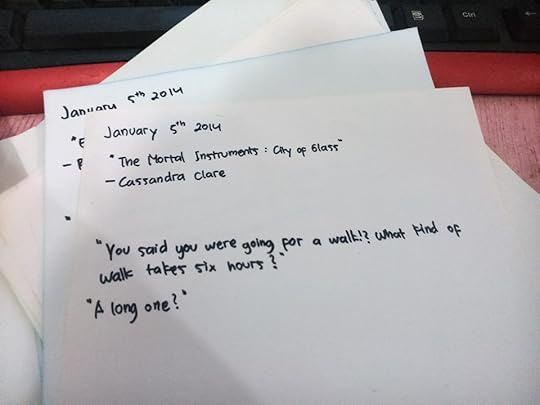 Ctrl
January 5th 2014
January 5th 2014
"The Mortal Instruments : City of Glass"
- Cassandra Clare
"You said you were going for a walk!? What kind of
walk takes six hours?"
"A long one?"